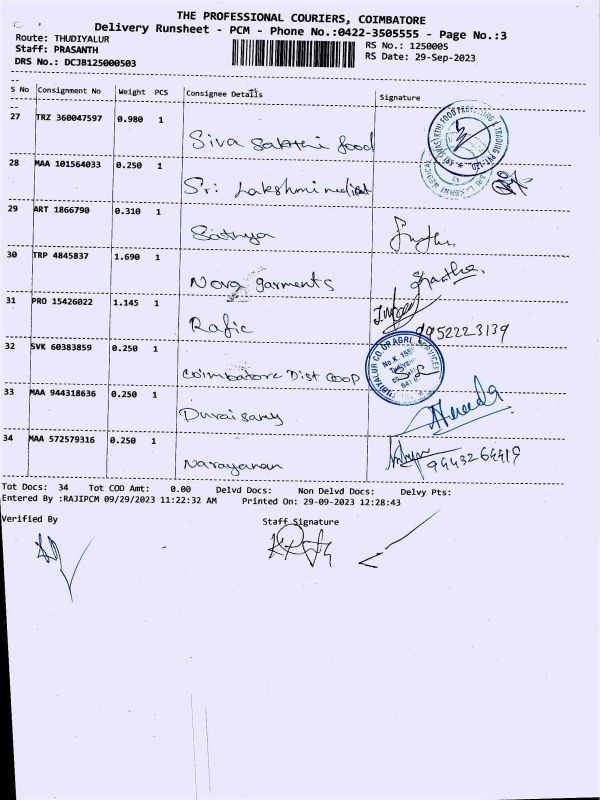 THE PROFESSIONAL COURIERS, COIMBATORE
Delivery Runsheet - PCM - Phone No.:0422-3505555 - Page No.:3
Route: THUDIYALUR
RS No.: 1250005
Staff: PRASANTH
RS Date: 29-Sep-2023
DRS No.: DCJB125000503
S No Consignment No Weight PCS Consignee Details Signature
27 TRZ 360047597 0.980 1
Siva Sakthi food
28 MAA 101564033 0.250 1
Sri Lakshmi medical
29 ART 1866790 0.310 1
Sathya
30 TRP 4845837 1.690 1
Nova garments
31 PRO 15426022 1.145 1
Rafic
9952223139
32 SVK 60383859 0.250 1
Coimbatore Dist Coop
33 MAA 944318636 0.250 1
Duraisamy
34 MAA 572579316 0.250 1
Narayanan
9443264419
Tot Docs: 34 Tot COD Amt: 0.00 Delvd Docs: Non Delvd Docs: Delvy Pts:
Entered By :RAJIPCM 09/29/2023 11:22:32 AM Printed On: 29-09-2023 12:28:43
Verified By Staff Signature